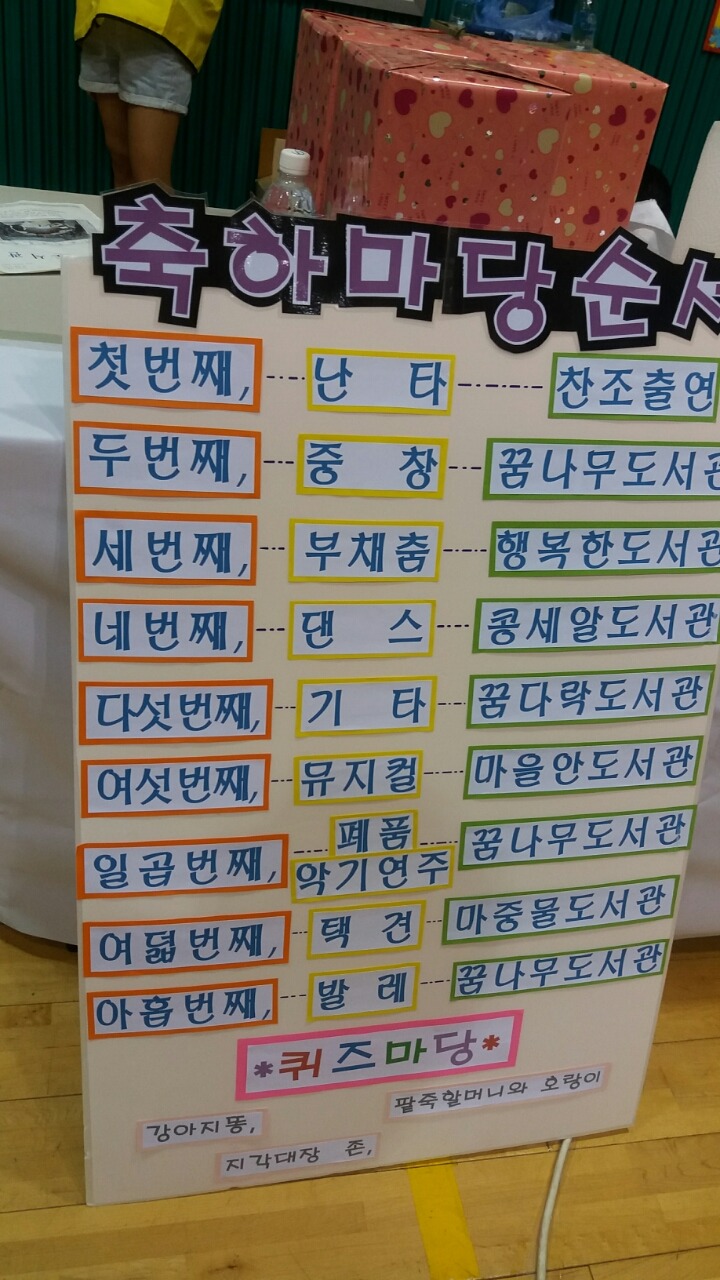 축하마당순서
첫번째, 난 타 찬조출연
두번째, 중 창 꿈나무도서관
세번째, 부채춤 행복한도서관
네번째, 댄 스 콩세알도서관
다섯번째, 기 타 꿈다락도서관
여섯번째, 뮤지컬 마을안도서관
일곱번째, 폐품 악기연주 꿈나무도서관
여덟번째, 택 견 마중물도서관
아홉번째, 발 레 꿈나무도서관
*퀴즈마당*
강아지똥, 팥죽할머니와 호랑이
지각대장 존,